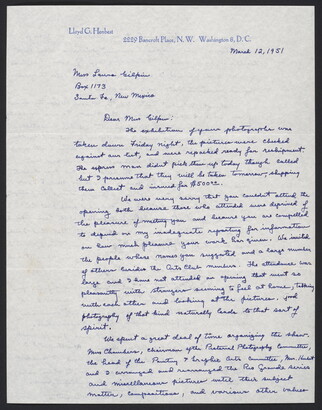 Lloyd G. Henbest
2229 Bancroft Place, N. W. Washington 8, D. C.
March 12, 1951
Miss Laura Gilpin
Box 1173
Santa Fe, New Mexico
Dear Miss Gilpin:
The exhibition of your photographs was
taken down Friday night. The pictures were checked
against our list, and were repacked ready for reshipment.
The express man didn't pick them up today though called
but I presume that they will be taken tomorrow, shipping
them Collect and insured for $500.00.
We were very sorry that you couldn't attend the
opening both because those who attended were deprived of
the pleasure of meeting you and because you are compelled
to depend on my inadequate reporting for information
on how much pleasure your work has given. We invited
the people whose names you suggested and a large number
of others besides the Arts Club members. The attendance was
large and I have not attended an opening that went so
pleasantly with strangers seeming to feel at home, talking
with each other and looking at the pictures. Good
photography of that kind naturally leads to that sort of
spirit.
We spent a great deal of time organizing the show.
Miss Chambers, chairman of the Pictorial Photography Committee,
the head of the Painting & Graphic Arts Committee, Mrs. Henbest
and I arranged and rearranged the Rio Grande series
and miscellaneous pictures until their subject
matter, compositions, and various other values